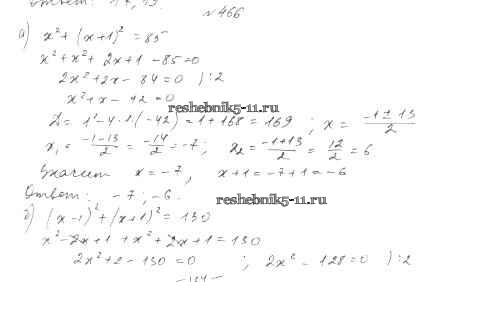 Ответ: 14, 13.
№466
а) x² + (x+1)² = 85
x² + x² + 2x + 1 - 85 = 0
2x² + 2x - 84 = 0 ) :2
x² + x - 42 = 0
reshebnik5-11.ru
D = 1² - 4·1·(-42) = 1 + 168 = 169 ; x = (-1 ± 13)/2
x₁ = (-1-13)/2 = -14/2 = -7; x₂ = (-1+13)/2 = 12/2 = 6
Значит x = -7, x+1 = -7+1 = -6
Ответ: -7; -6.
reshebnik5-11.ru
б) (x-1)² + (x+1)² = 130
x² - 2x + 1 + x² + 2x + 1 = 130
2x² + 2 - 130 = 0 ; 2x² - 128 = 0 ) :2